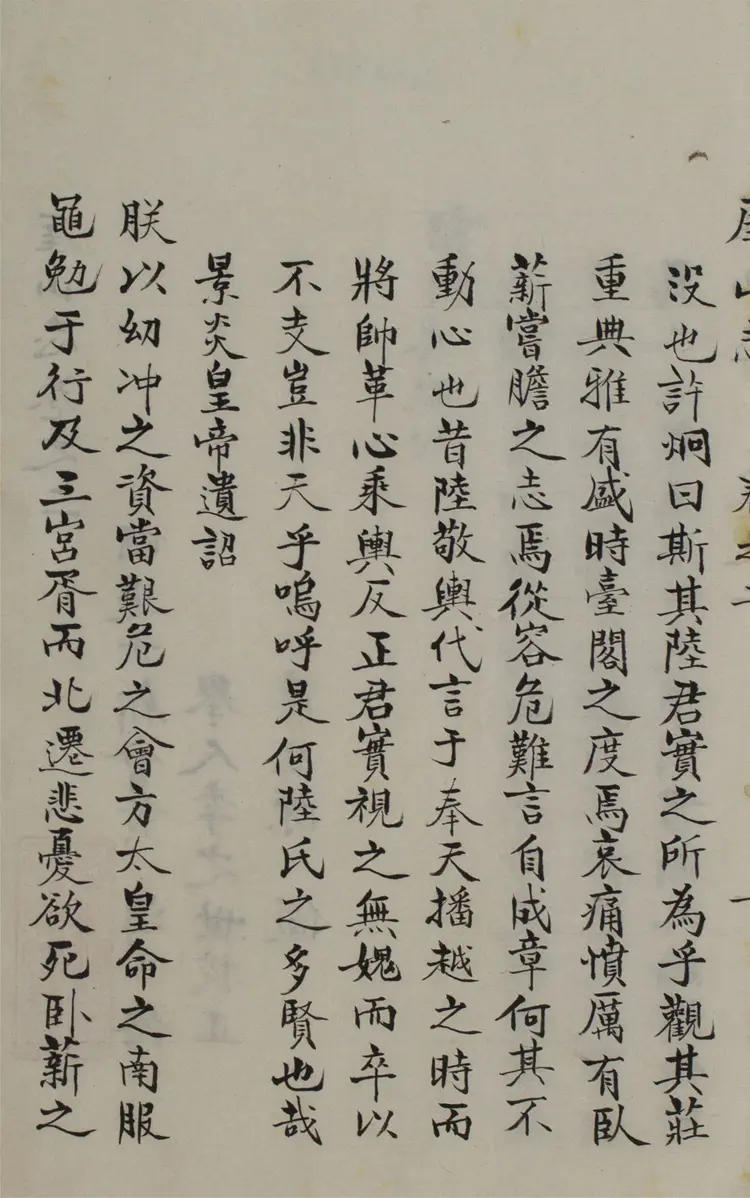 没也許炯曰斯其陸君實之所為乎觀其莊
重典雅有盛時臺閣之度焉哀痛憤厲有臥
薪嘗膽之志焉從容危難言自成章何其不
動心也昔陸敬輿代言于奉天播越之時而
將帥革心乘輿反正君實視之無媿而卒以
不支豈非天乎嗚呼是何陸氏之多賢也哉
景炎皇帝遺詔
朕以幼冲之資當艱危之會方太皇命之南服
黽勉于行及三宮胥而北遷悲憂欲死臥薪之